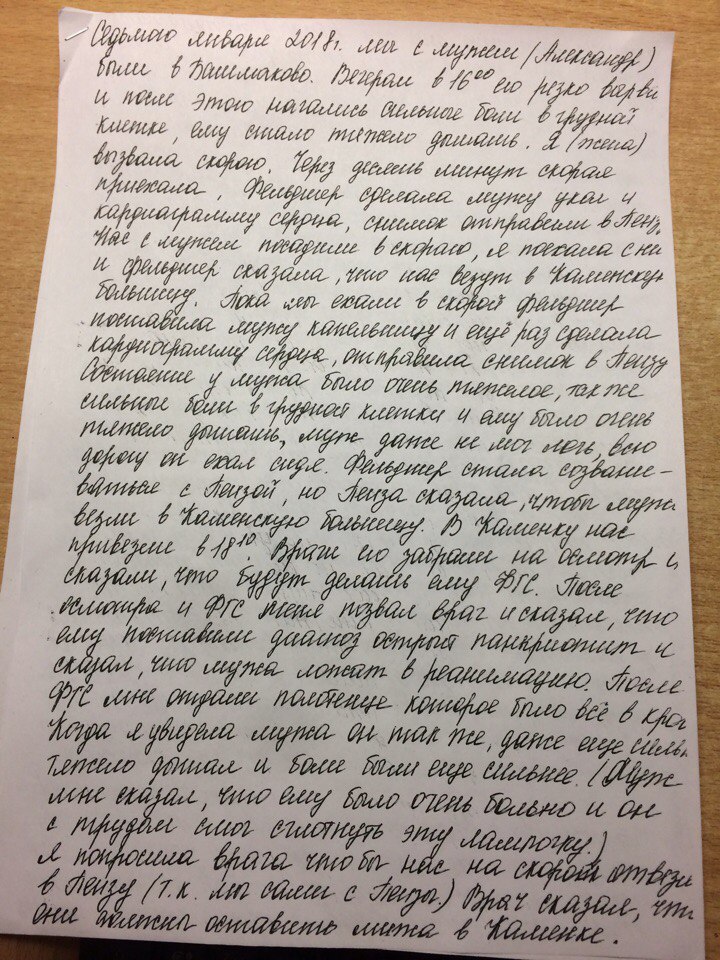 Седьмого января 2018г. мы с мужем (Александр)
были в Башмаково. Вечером в 16⁰⁰ его резко вырви
и после этого начались сильные боли в грудной
клетке, ему стало тяжело дышать. Я (жена)
вызвала скорою. Через десять минут скорая
приехала, Фельдшер сделала мужу укол и
кардиаграмму сердца, снимок отправили в Пенз
Нас с мужем посадили в скораю, я поехала с ни
и фельдшер сказала, что нас везут в Каменскую
больницу. Пока мы ехали в скорой фельдшер
поставила мужу капельницу и ещё раз сделала
кардиограмму сердца, отправила снимок в Пензу
Состаение у мужа было очень тяжелое, так же
сильные боли в грудной клетки и ему было очень
тяжело дышать, муж даже не мог лечь, всю
дорогу он ехал сидя. Фельдшер стала созвани-
ваться с Пензой, но Пенза сказала, чтобы мужа
везли в Каменскую больницу. В Каменку нас
привезли в 18¹⁰. Врачи его забрали на осмотр и
сказали, что будут делать ему ФГС. После
осмотра и ФГС меня позвал врач и сказал, что
ему поставили диагноз острый панкриотит и
сказал, что мужа ложат в реанимацию. После
ФГС мне отдали полотенце которое было всё в кров
Когда я увидела мужа он так же, даже еще сильн
тяжело дышал и боли были еще сильнее. (Муж
мне сказал, что ему было очень больно и он
с трудом смог сглотнуть эту лампочку.)
Я попросила врача что бы нас на скорой отвезли
в Пензу (т.к. мы сами с Пензы.) Врач сказал, что
они должны оставить мужа в Каменке.